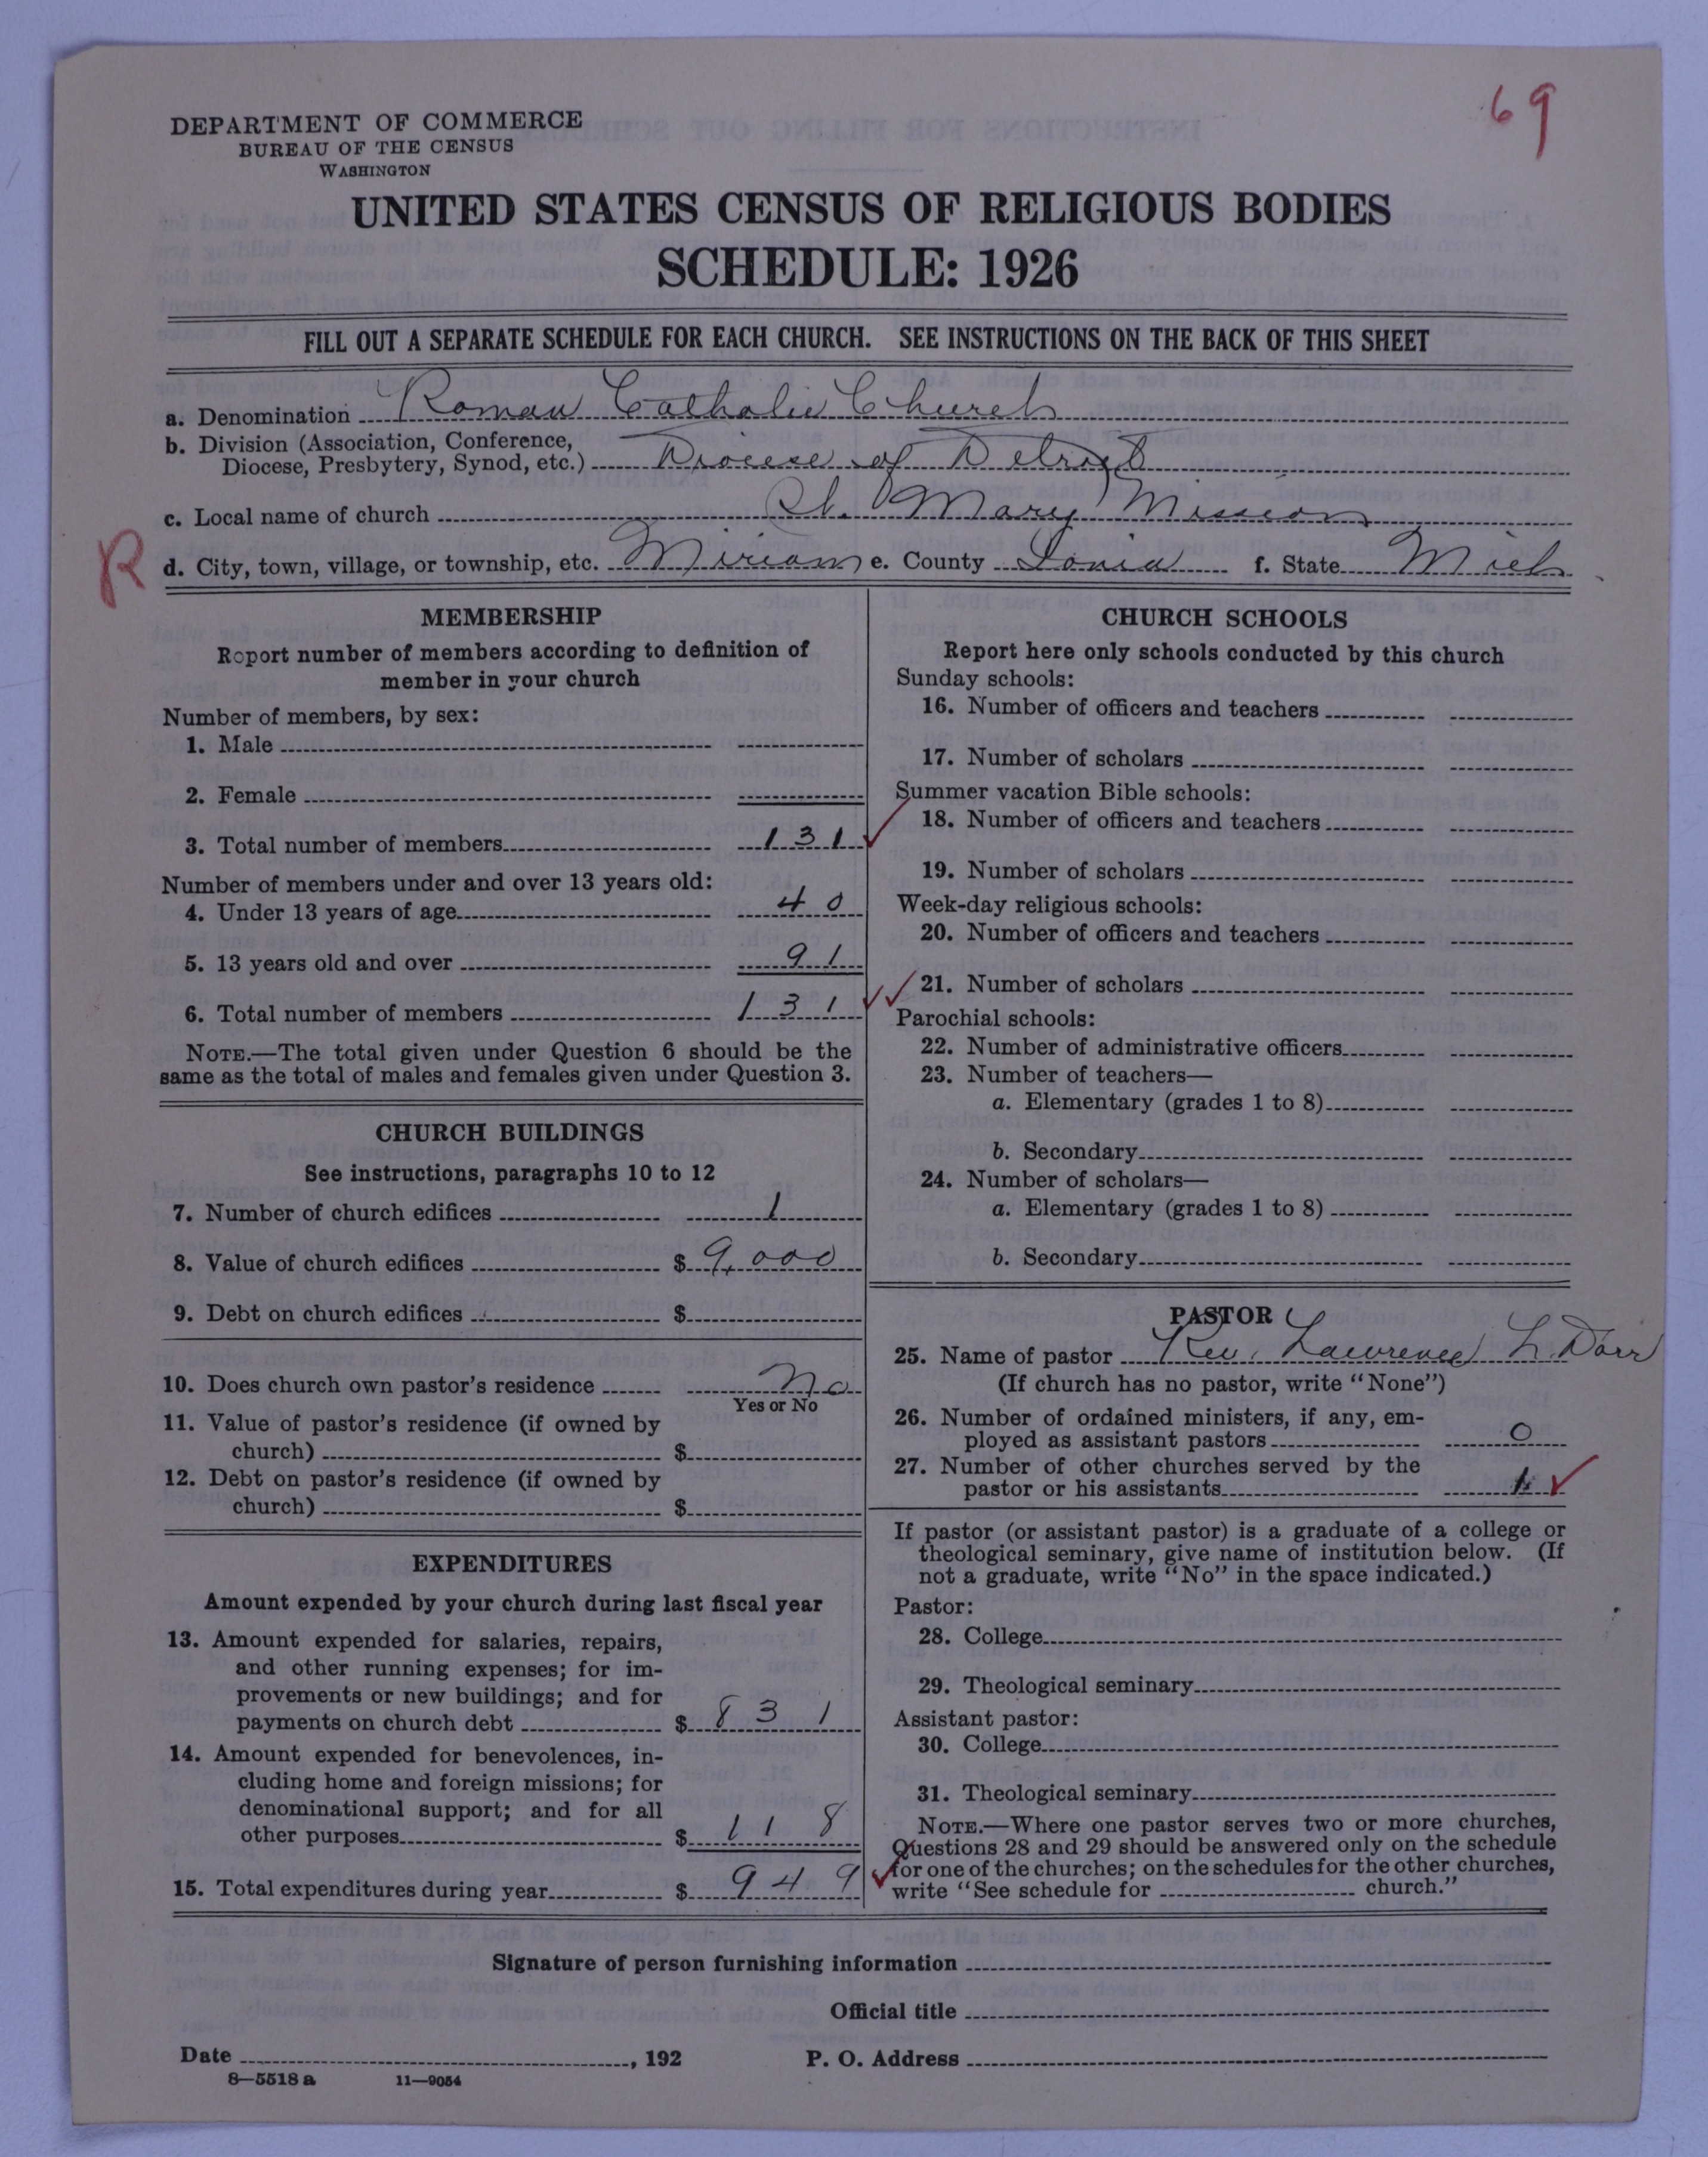 69
DEPARTMENT OF COMMERCE
BUREAU OF THE CENSUS
WASHINGTON
UNITED STATES CENSUS OF RELIGIOUS BODIES
SCHEDULE: 1926
FILL OUT A SEPARATE SCHEDULE FOR EACH CHURCH. SEE INSTRUCTIONS ON THE BACK OF THIS SHEET
a. Denomination Roman Catholic Church
b. Division (Association, Conference,
Diocese, Presbytery, Synod, etc.) Diocese of Detroit
c. Local name of church St. Mary Mission
R d. City, town, village, or township, etc. Miriam e. County Ionia f. State Mich
MEMBERSHIP
Report number of members according to definition of
member in your church
Number of members, by sex:
1. Male
2. Female
3. Total number of members 131
Number of members under and over 13 years old:
4. Under 13 years of age 40
5. 13 years old and over 91
6. Total number of members 131
NOTE.—The total given under Question 6 should be the
same as the total of males and females given under Question 3.
CHURCH BUILDINGS
See instructions, paragraphs 10 to 12
7. Number of church edifices 1
8. Value of church edifices $ 9,000
9. Debt on church edifices $
10. Does church own pastor's residence No
Yes or No
11. Value of pastor's residence (if owned by
church) $
12. Debt on pastor's residence (if owned by
church) $
EXPENDITURES
Amount expended by your church during last fiscal year
13. Amount expended for salaries, repairs,
and other running expenses; for im-
provements or new buildings; and for
payments on church debt $ 831
14. Amount expended for benevolences, in-
cluding home and foreign missions; for
denominational support; and for all
other purposes $ 118
15. Total expenditures during year $ 949
CHURCH SCHOOLS
Report here only schools conducted by this church
Sunday schools:
16. Number of officers and teachers
17. Number of scholars
Summer vacation Bible schools:
18. Number of officers and teachers
19. Number of scholars
Week-day religious schools:
20. Number of officers and teachers
21. Number of scholars
Parochial schools:
22. Number of administrative officers
23. Number of teachers—
a. Elementary (grades 1 to 8)
b. Secondary
24. Number of scholars—
a. Elementary (grades 1 to 8)
b. Secondary
PASTOR
25. Name of pastor Rev. Lawrence L. Dorr
(If church has no pastor, write "None")
26. Number of ordained ministers, if any, em-
ployed as assistant pastors 0
27. Number of other churches served by the
pastor or his assistants 1
If pastor (or assistant pastor) is a graduate of a college or
theological seminary, give name of institution below. (If
not a graduate, write "No" in the space indicated.)
Pastor:
28. College
29. Theological seminary
Assistant pastor:
30. College
31. Theological seminary
NOTE.—Where one pastor serves two or more churches,
Questions 28 and 29 should be answered only on the schedule
for one of the churches; on the schedules for the other churches,
write "See schedule for church."
Signature of person furnishing information
Official title
Date , 192 P. O. Address
8—5518 a 11—9054